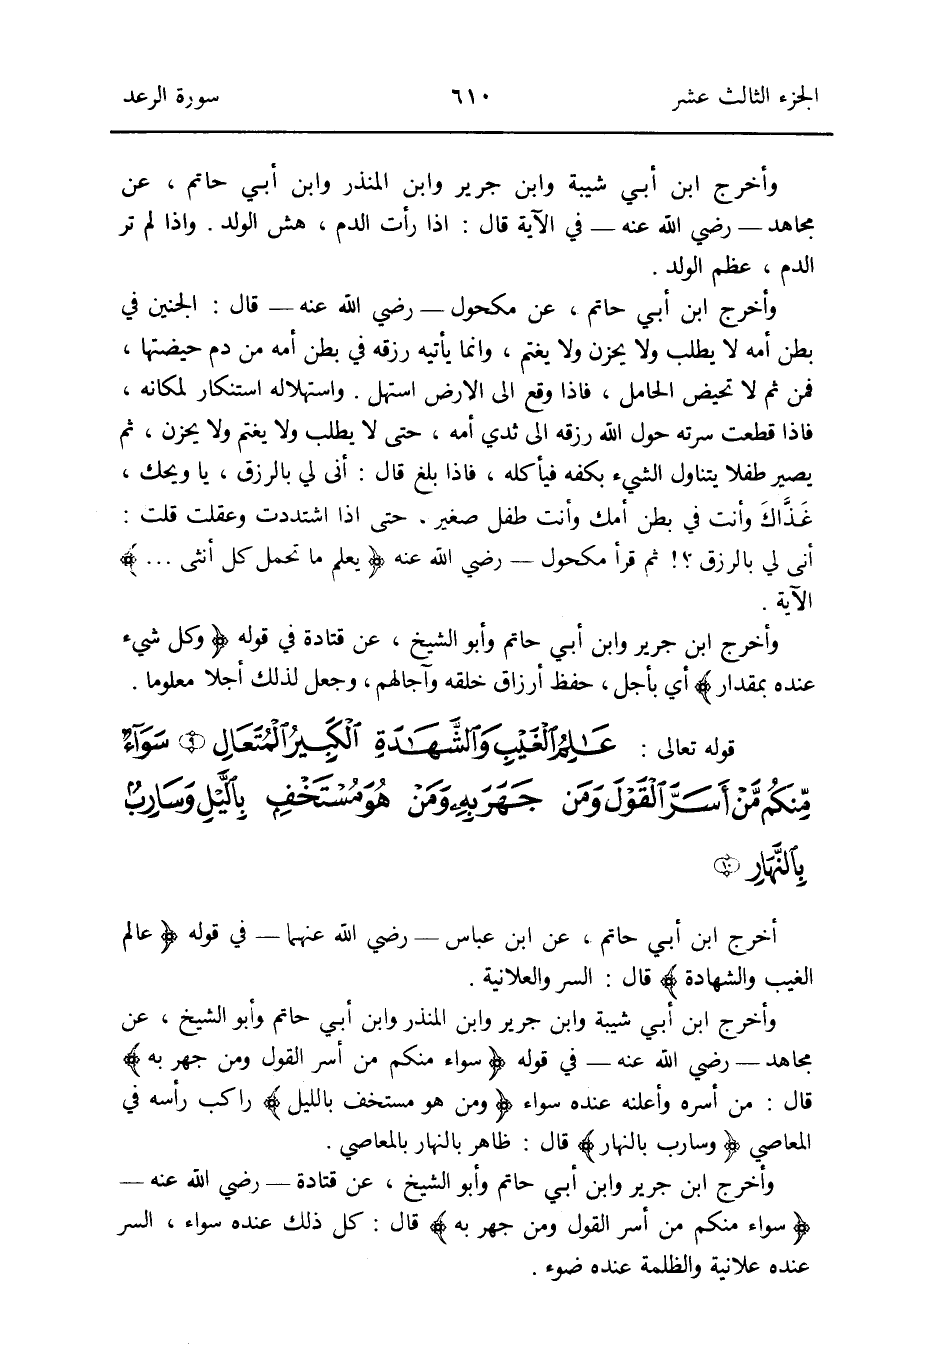 الجزء الثالث عشر ٦١٠ سورة الرعد
وأخرج ابن أبي شيبة وابن جرير وابن المنذر وابن أبي حاتم ، عن
مجاهد — رضي الله عنه — في الآية قال : اذا رأت الدم ، هش الولد . واذا لم تر
الدم ، عظم الولد .
وأخرج ابن أبي حاتم ، عن مكحول — رضي الله عنه — قال : الجنين في
بطن أمه لا يطلب ولا يحزن ولا يغتم ، وانما يأتيه رزقه في بطن أمه من دم حيضتها ،
فمن ثم لا تحيض الحامل ، فاذا وقع الى الارض استهل . واستهلاله استنكار لمكانه ،
فاذا قطعت سرته حول الله رزقه الى ثدي أمه ، حتى لا يطلب ولا يغتم ولا يحزن ، ثم
يصير طفلا يتناول الشيء بكفه فيأكله ، فاذا بلغ قال : أنى لي بالرزق ، يا ويحك ،
غَذَّاكَ وأنت في بطن أمك وأنت طفل صغير . حتى اذا اشتددت وعقلت قلت :
أنى لي بالرزق ؟! ثم قرأ مكحول — رضي الله عنه ﴿ يعلم ما تحمل كل أنثى ... ﴾
الآية .
وأخرج ابن جرير وابن أبي حاتم وأبو الشيخ ، عن قتادة في قوله ﴿ وكل شيء
عنده بمقدار ﴾ أي بأجل ، حفظ أرزاق خلقه وآجالهم ، وجعل لذلك أجلا معلوما .
قوله تعالى : عَٰلِمُ ٱلْغَيْبِ وَٱلشَّهَٰدَةِ ٱلْكَبِيرُ ٱلْمُتَعَالِ ٩ سَوَآءٌ
مِّنكُم مَّنْ أَسَرَّ ٱلْقَوْلَ وَمَن جَهَرَ بِهِۦ وَمَنْ هُوَ مُسْتَخْفٍۭ بِٱلَّيْلِ وَسَارِبٌۢ
بِٱلنَّهَارِ ١٠
أخرج ابن أبي حاتم ، عن ابن عباس — رضي الله عنهما — في قوله ﴿ عالم
الغيب والشهادة ﴾ قال : السر والعلانية .
وأخرج ابن أبي شيبة وابن جرير وابن المنذر وابن أبي حاتم وأبو الشيخ ، عن
مجاهد — رضي الله عنه — في قوله ﴿ سواء منكم من أسر القول ومن جهر به ﴾
قال : من أسره وأعلنه عنده سواء ﴿ ومن هو مستخف بالليل ﴾ راكب رأسه في
المعاصي ﴿ وسارب بالنهار ﴾ قال : ظاهر بالنهار بالمعاصي .
وأخرج ابن جرير وابن أبي حاتم وأبو الشيخ ، عن قتادة — رضي الله عنه —
﴿ سواء منكم من أسر القول ومن جهر به ﴾ قال : كل ذلك عنده سواء ، السر
عنده علانية والظلمة عنده ضوء .